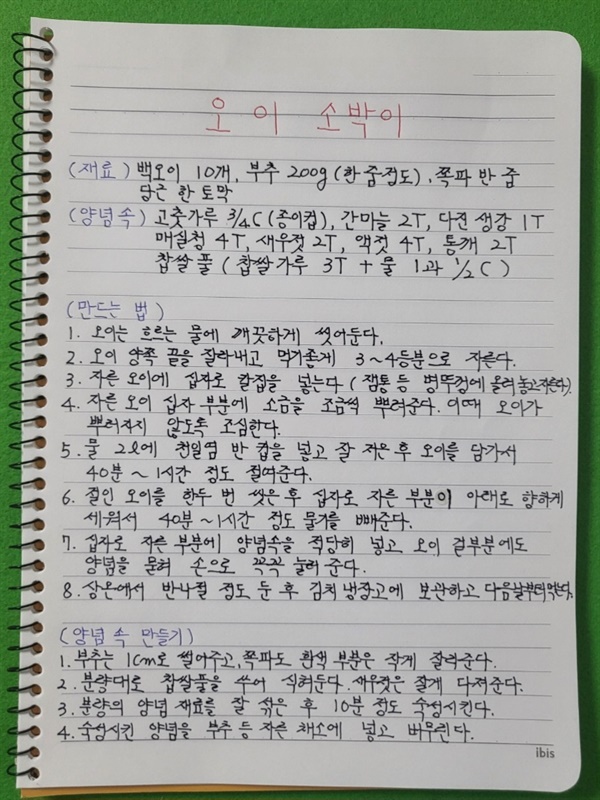 오이 소박이
(재료) 백오이 10개, 부추 200g (한 줌정도), 쪽파 반 줌
당근 한 토막
(양념속) 고춧가루 3/4C (종이컵), 간마늘 2T, 다진 생강 1T
매실청 4T, 새우젓 2T, 액젓 4T, 통깨 2T
찹쌀 풀 (찹쌀가루 3T + 물 1과 1/2C)
(만드는 법)
1. 오이는 흐르는 물에 깨끗하게 씻어둔다.
2. 오이 양쪽 끝을 잘라내고 먹기좋게 3~4등분으로 자른다.
3. 자른 오이에 십자로 칼집을 넣는다 (잼통 등 병뚜껑에 올려놓고자른다).
4. 자른 오이 십자 부분에 소금을 조금씩 뿌려준다. 이때 오이가
뿌러지지 않도록 조심한다.
5. 물 2ℓ에 천일염 반 컵을 넣고 잘 저은 후 오이를 담가서
40분 ~ 1시간 정도 절여준다.
6. 절인 오이를 한두 번 씻은 후 십자로 자른 부분이 아래로 향하게
세워서 40분 ~ 1시간 정도 물기를 빼준다.
7. 십자로 자른 부분에 양념속을 적당히 넣고 오이 겉부분에도
양념을 묻혀 손으로 꼭꼭 눌러준다.
8. 상온에서 반나절 정도 둔 후 김치 냉장고에 보관하고 다음날부터먹는다.
(양념 속 만들기)
1. 부추는 1cm로 썰어주고, 쪽파도 흰색 부분은 작게 잘라준다.
2. 분량대로 찹쌀풀을 쑤어 식혀둔다. 새우젓은 잘게 다져준다.
3. 분량의 양념 재료를 잘 섞은 후 10분 정도 숙성시킨다.
4. 숙성시킨 양념을 부추 등 자른 채소에 넣고 버무린다.
ibis